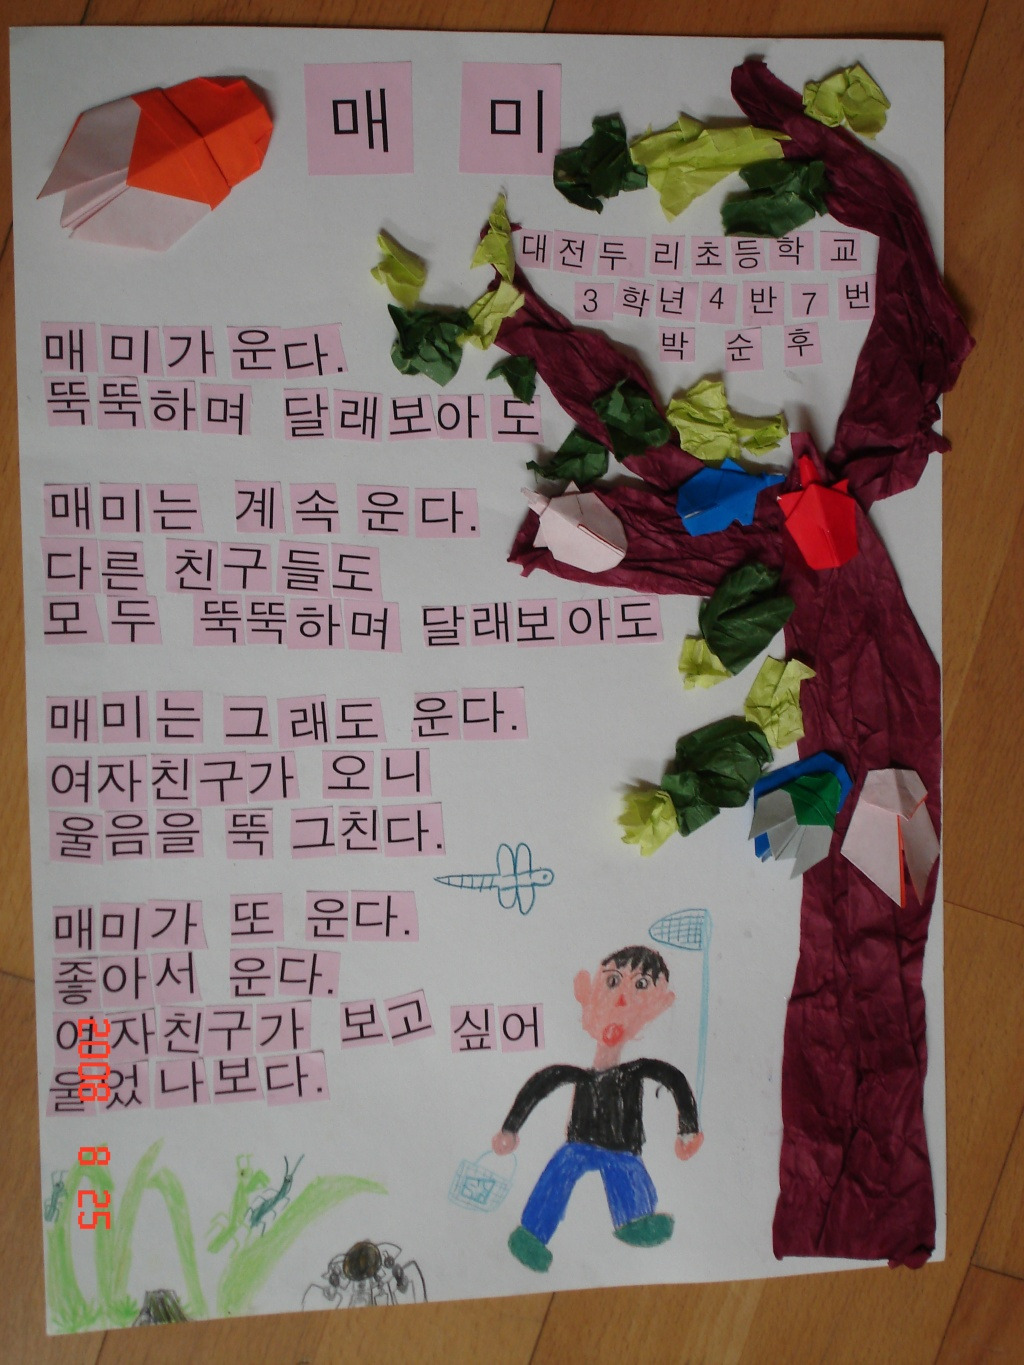 매미
대전두리초등학교
3학년4반7번
박순후
매미가 운다.
뚝뚝하며 달래보아도
매미는 계속 운다.
다른 친구들도
모두 뚝뚝하며 달래보아도
매미는 그래도 운다.
여자친구가 오니
울음을 뚝 그친다.
매미가 또 운다.
좋아서 운다.
여자친구가 보고 싶어
울었나보다.
2008 8 25